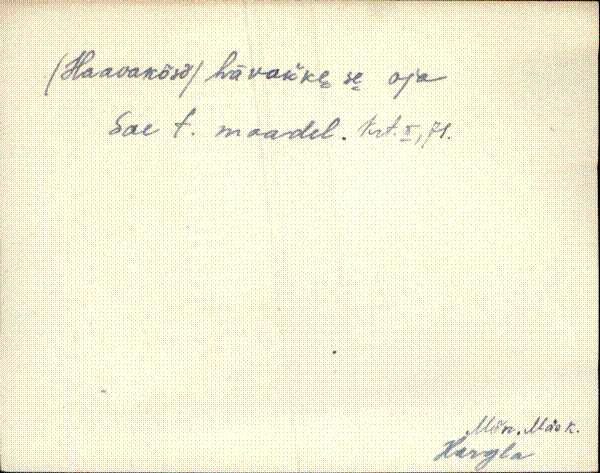 (Haavakõsõ) hāvak̀kę sę oja
Soe t. maadel. Krt. II, 71.
Mõn. Mäek.
Hargla